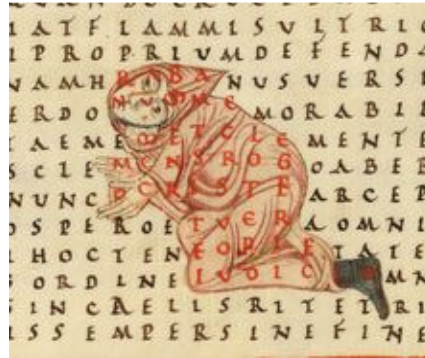 IATFLAMMISULTRIC
IPROPRIUMDEFENDA
NAMHRABANUSUERSI
ERDONUMMEMORABIL
TAEMEMETCLEMENTE
SCLEMENSROGOABEB
NUNCOCRISTEARCEP
OSPEROETUERAOMNI
IHOCTENEOPIETATE
GORDINEIUDICIOMN
FINCAELISRITETRI
ISSEMPERSINEFINE